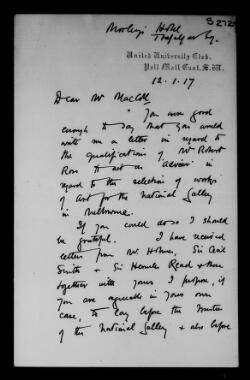 Morley's Hotel
Trafalgar Sq.
S 272
United University Club,
Pall Mall East, S.W.
12.1.17
Dear Mr MacColl
You were good
enough to say that you would
write me a letter in regard to
the qualifications of Mr Robert
Ross to act as Adviser in
regard to the selection of works
of Art for the National Gallery
in Melbourne.
If you could do so I should
be grateful. I have received
letters from Mr. Holmes, Sir Cecil
Smith & Sir Hercules Read & these
together with yours I propose, if
you are agreeable in your own
case, to lay before the Trustees
of the National Gallery & also before